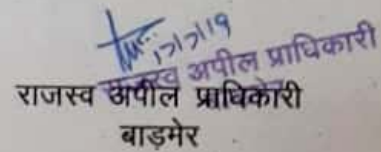 17/7/19
राजस्व अपील प्राधिकारी
राजस्व अपील प्राधिकारी
बाड़मेर